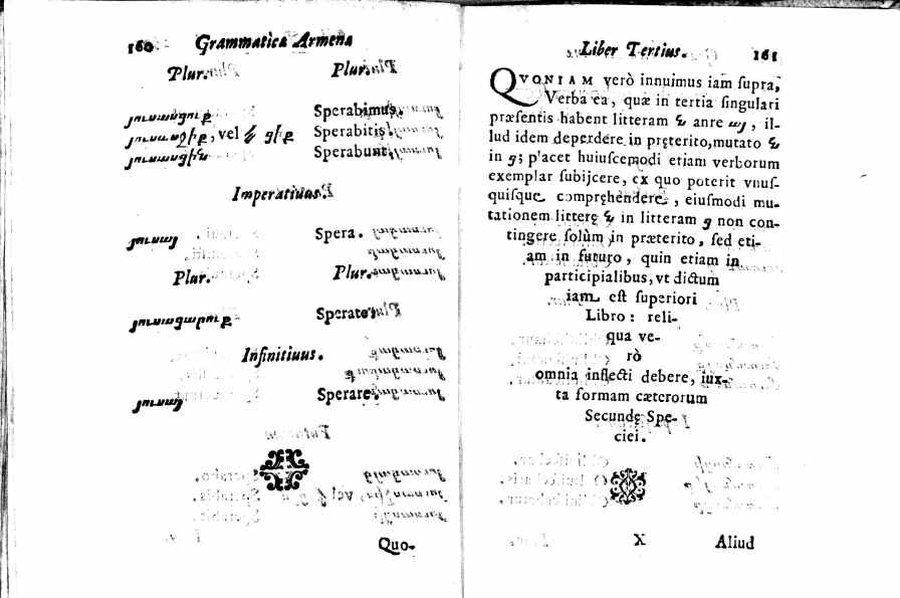 160 Grammatica Armena
Plur. Plur.
յուսասցուք Sperabimus.
յուսասջիք, vel ցիք Sperabitis.
յուսասցին Sperabunt.
Imperatiuus.
Spera.
Plur. Plur.
յուսացարուք Sperate.
Infinitiuus.
յուսալ Sperare.
Quo-
Liber Tertius. 161
QVONIAM verò innuimus iam supra,
Verba ea, quæ in tertia singulari
præsentis habent litteram ն anre այ, il-
lud idem deperdere in pręterito, mutato ն
in ց; p'acet huiuscemodi etiam verborum
exemplar subijcere, ex quo poterit vnus-
quisque compręhendere, eiusmodi mu-
tationem litterę ն in litteram ց non con-
tingere solùm in præterito, sed eti-
am in futuro, quin etiam in
participialibus, vt dictum
iam est superiori
Libro: reli-
qua ve-
rò
omnia inflecti debere, iux-
ta formam cæterorum
Secundę Spe-
ciei.
X Aliud